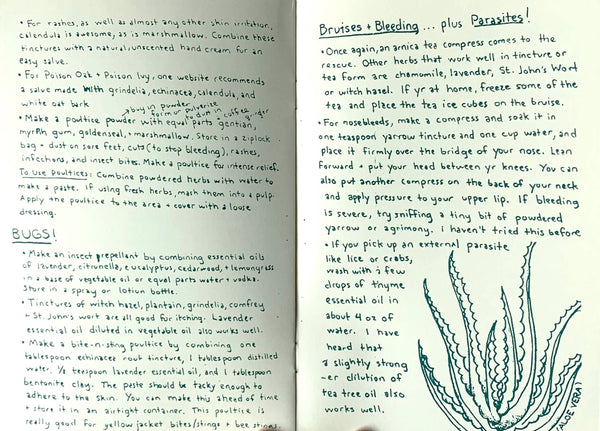 • For rashes, as well as almost any other skin irritation,
calendula is awesome, as is marshmallow. Combine these
tinctures with a natural, unscented hand cream for an
easy salve.
• For Poison Oak + Poison Ivy, one website recommends
a salve made with grindelia, echinacea, calendula, and
white oat bark
→ buy in powder
form or pulverize
to dust in coffee grinder
• Make a poultice powder with equal parts gentian,
myrrh gum, goldenseal, + marshmallow. Store in a ziplock
bag + dust on sore feet, cuts (to stop bleeding), rashes,
infections, and insect bites. Make a poultice for intense relief.
To Use Poultices: Combine powdered herbs with water to
make a paste. If using fresh herbs, mash them into a pulp.
Apply the poultice to the area + cover with a loose
dressing.
BUGS!
• Make an insect repellant by combining essential oils
of lavender, citronella, eucalyptus, cedarwood, + lemongrass
in a base of vegetable oil or equal parts water + vodka.
Store in a spray or lotion bottle.
• Tinctures of witch hazel, plantain, grindelia, comfrey
+ St. John's wort are all good for itching. Lavender
essential oil diluted in vegetable oil also works well.
• Make a bite-n-sting poultice by combining one
tablespoon echinacea root tincture, 1 tablespoon distilled
water, ⅓ teaspoon lavender essential oil, and 1 tablespoon
bentonite clay. The paste should be tacky enough to
adhere to the skin. You can make this ahead of time
+ store it in an airtight container. This poultice is
really good for yellow jacket bites/stings + bee stings.
Bruises + Bleeding ... plus Parasites!
• Once again, an arnica tea compress comes to the
rescue. Other herbs that work well in tincture or
tea form are chamomile, lavender, St. John's Wort
or witch hazel. If yr at home, freeze some of the
tea and place the tea ice cubes on the bruise.
• For nosebleeds, make a compress and soak it in
one teaspoon yarrow tincture and one cup water, and
place it firmly over the bridge of your nose. Lean
forward + put your head between yr knees. You can
also put another compress on the back of your neck
and apply pressure to your upper lip. If bleeding
is severe, try sniffing a tiny bit of powdered
yarrow or agrimony. I haven't tried this before
• If you pick up an external parasite
like lice or crabs,
wash with a few
drops of thyme
essential oil in
about 4 oz of
water. I have
heard that
a slightly strong
-er dilution of
tea tree oil also
works well.
ALOE VERA!